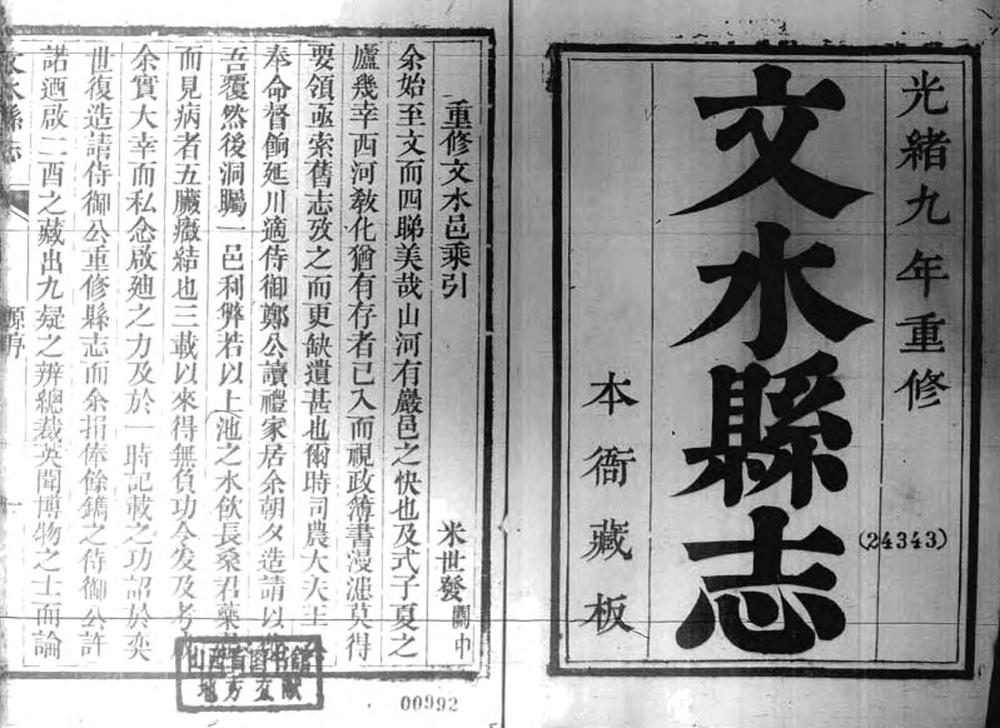 光緒九年重修
文水縣志
(24343)
本衙藏板
重修文水邑乘引
米世發關中
余始至文而四睇美哉山河有巖邑之快也及式子夏之
廬幾幸西河教化猶有存者已入而視政簿書漫漶莫得
要領亟索舊志攷之而更缺遺甚也爾時司農大夫王
奉命督餉延川適侍御鄭公讀禮家居余朝夕造請以
吾覆然後洞矚一邑利弊若以上池之水飲長桑君藥
而見病者五臟癥結也三載以來得無負功令发及考
余實大幸而私念啟廸之力及於一時記載之功詔於奕
世復造請侍御公重修縣志而余捐俸餘鐫之侍御公許
諾迺啟二酉之藏出九疑之辨總裁英聞博物之士而論
文水縣志
原序
一
山西省圖書館
地方文献
00992